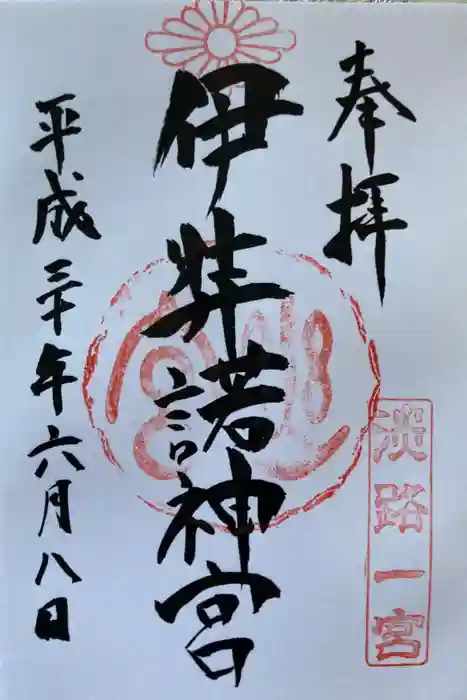 奉拝
淡路一宮
伊弉諾神宮
平成三十年六月八日